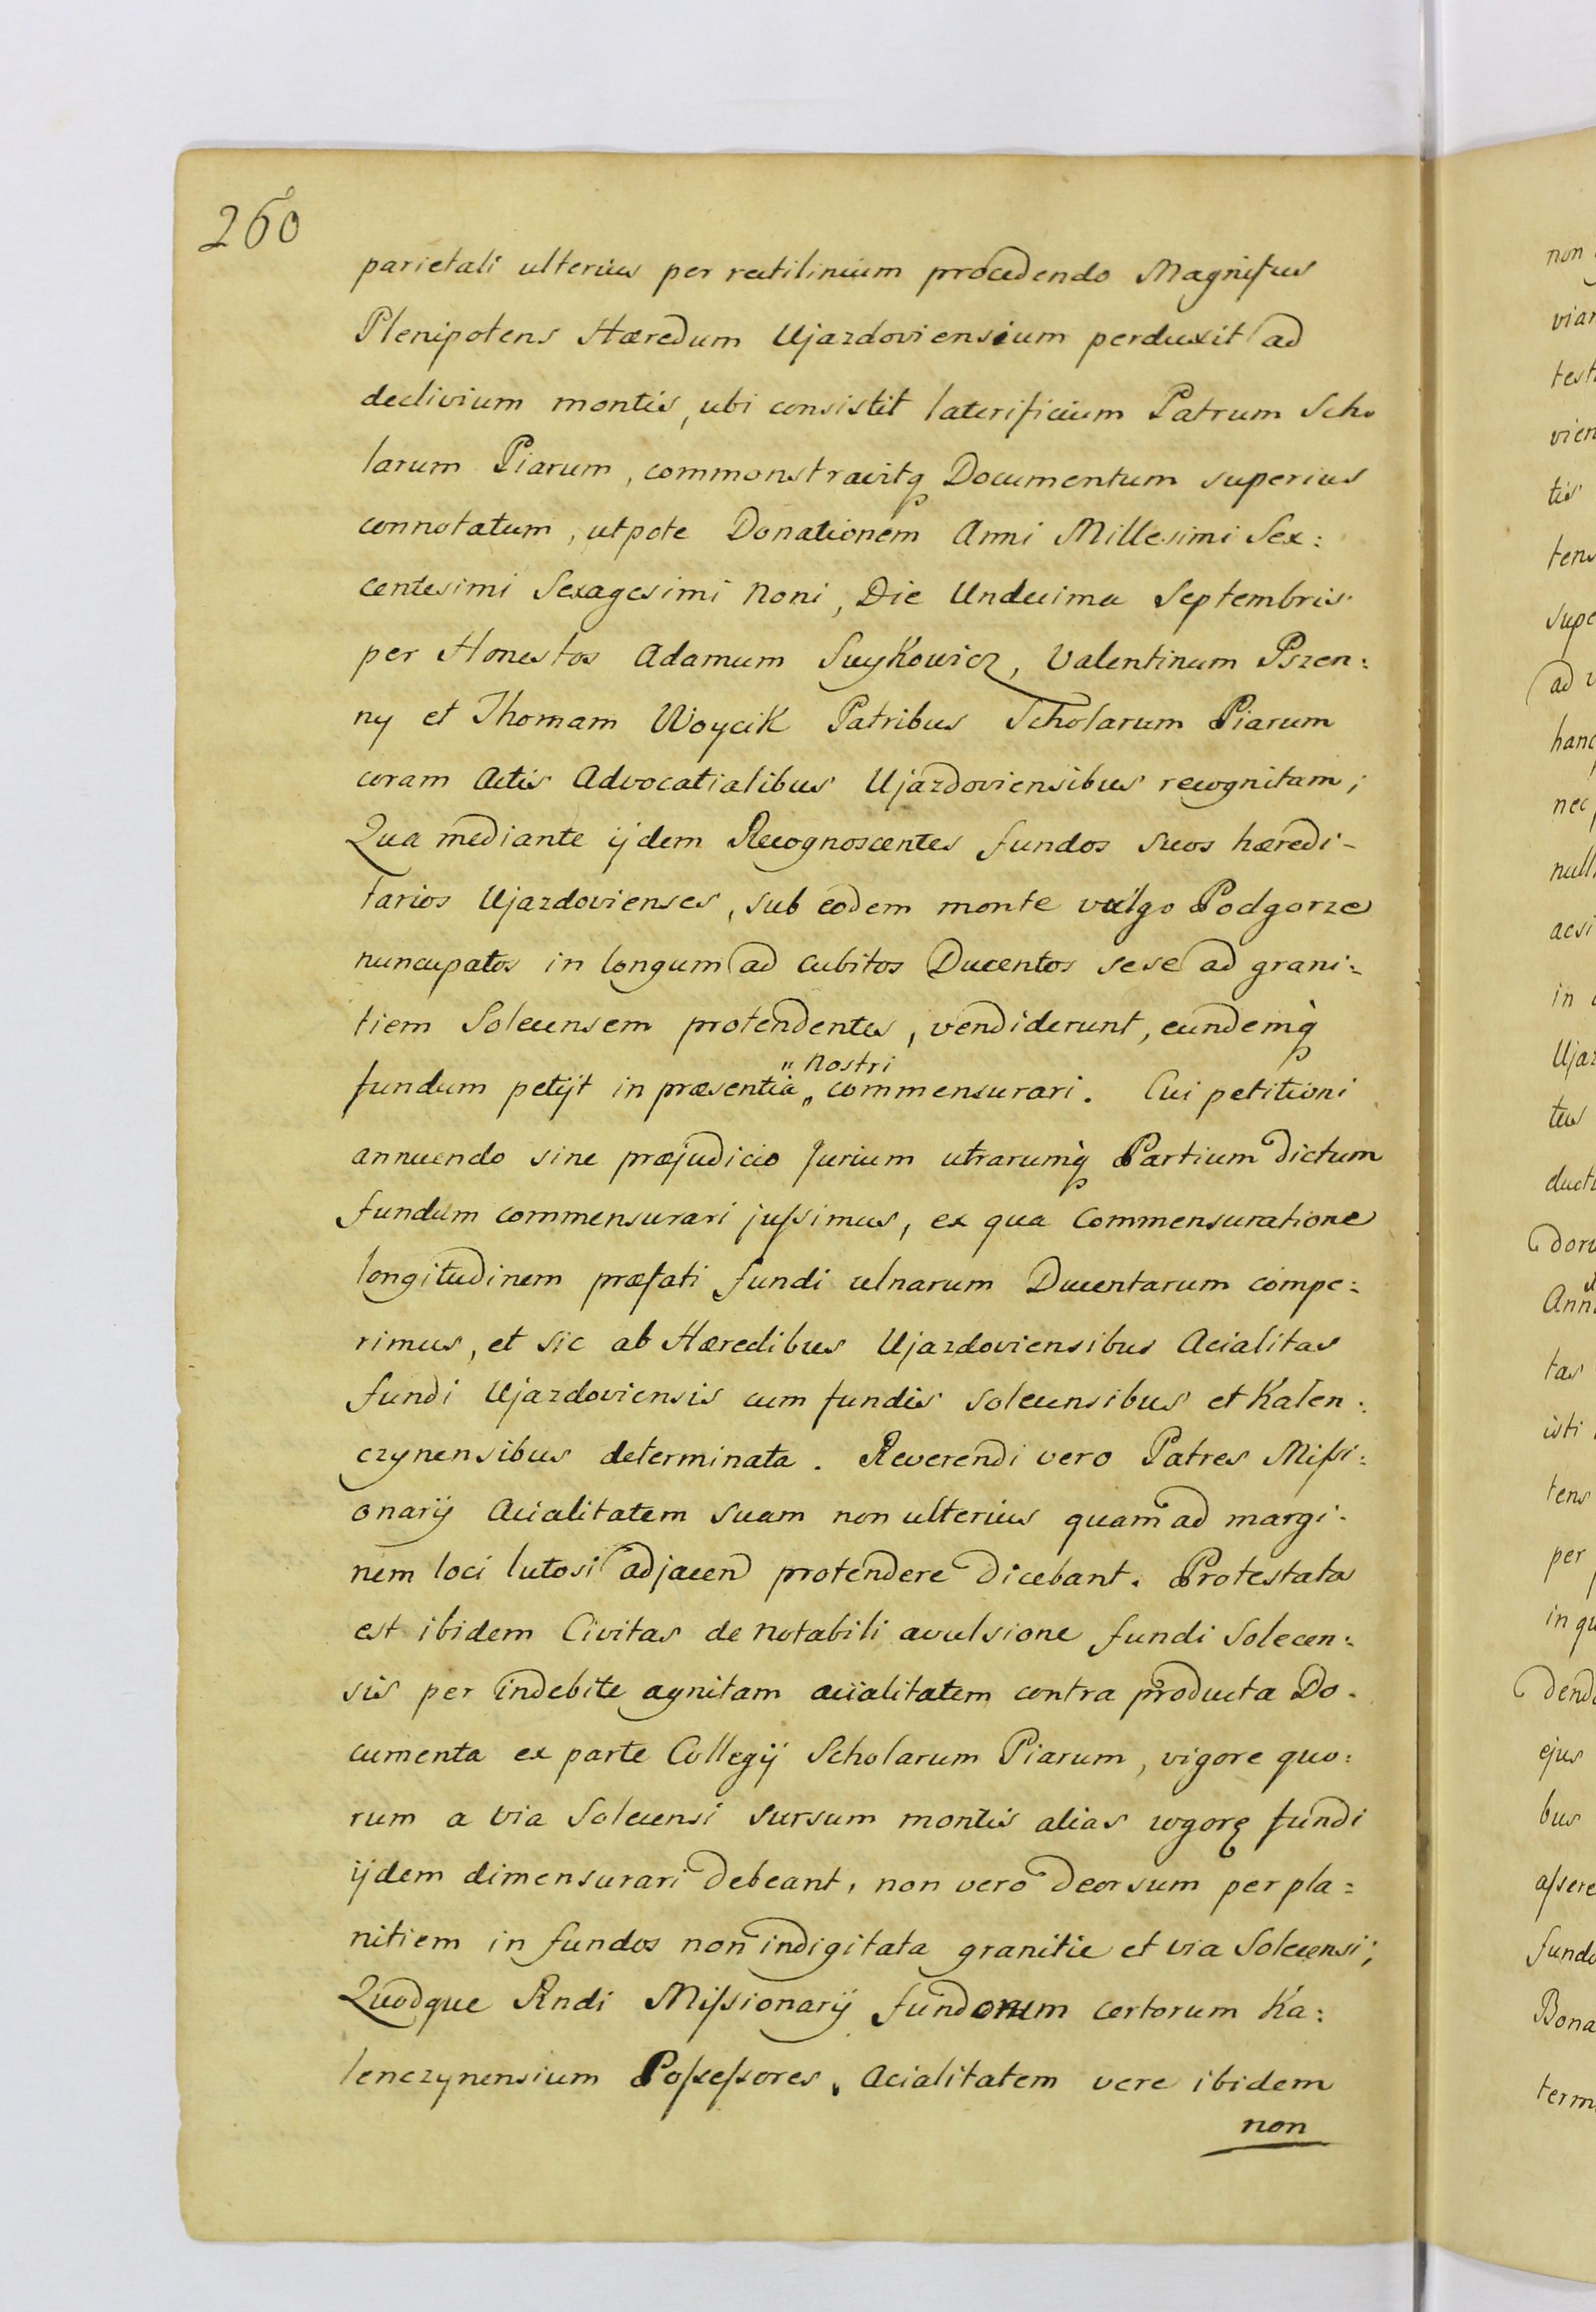 260
parietali ulterius per rectilinium procedendo Magnificus
Plenipotens Hæredum Ujazdoviensium perduxit ad
declivium montis, ubi consistit laterificium Patrum Scho
larum Piarum, commonstravitq Documentum superius
connotatum, utpote Donationem Anni Millesimi Sex:
centesimi Sexagesimi Noni, Die Undecima Septembris
per Honestos Adamum Suykowicz, Valentinum Pszen:
ny et Thomam Woycik Patribus Scholarum Piarum
coram Actis Advocatialibus Ujazdoviensibus recognitam;
Qua mediante ijdem Recognoscentes fundos suos hæredi-
tarios Ujazdovienses, sub eodem monte vulgo Podgorze
nuncupatos in longum ad cubitos Ducentos sese ad grani:
tiem Solecensem protendentes, vendiderunt, eundemq
" Nostri
fundum petijt in præsentia „ commensurari. Cui petitioni
annuendo sine præjudicio Jurium utrarumq Partium dictum
fundum commensurari jussimus, ex qua Commensuratione
longitudinem præfati fundi ulnarum Ducentarum compe:
rimus, et sic ab Hæredibus Ujazdoviensibus Acialitas
fundi Ujazdoviensis cum fundis Solecensibus et Kalen:
czynensibus determinata. Reverendi vero Patres Missi:
onarij Acialitatem suam non ulterius quam ad margi:
nem loci lutosi adjacen protendere dicebant. Protestata
est ibidem Civitas de notabili avulsione fundi Solecen:
sis per indebite agnitam acialitatem contra producta Do:
cumenta ex parte Collegij Scholarum Piarum, vigore quo:
rum a via Solecensi sursum montis alias wgorę fundi
ijdem dimensurari debeant, non vero deorsum per pla:
nitiem in fundos non indigitata granitie et via Solecensi;
Quodque Rndi Missionarij fundorum certorum Ka:
lenczynensium Possessores, Acialitatem vere ibidem
non
non
viar
test
vien
tis
tens
supe
ad v
hanc
nec
null
acsi
in
Ujaz
tus
duct
dorv
Ann
tas
isti
tens
per
in qu
dend
ejus
bus
assere
fundo
Bona
term